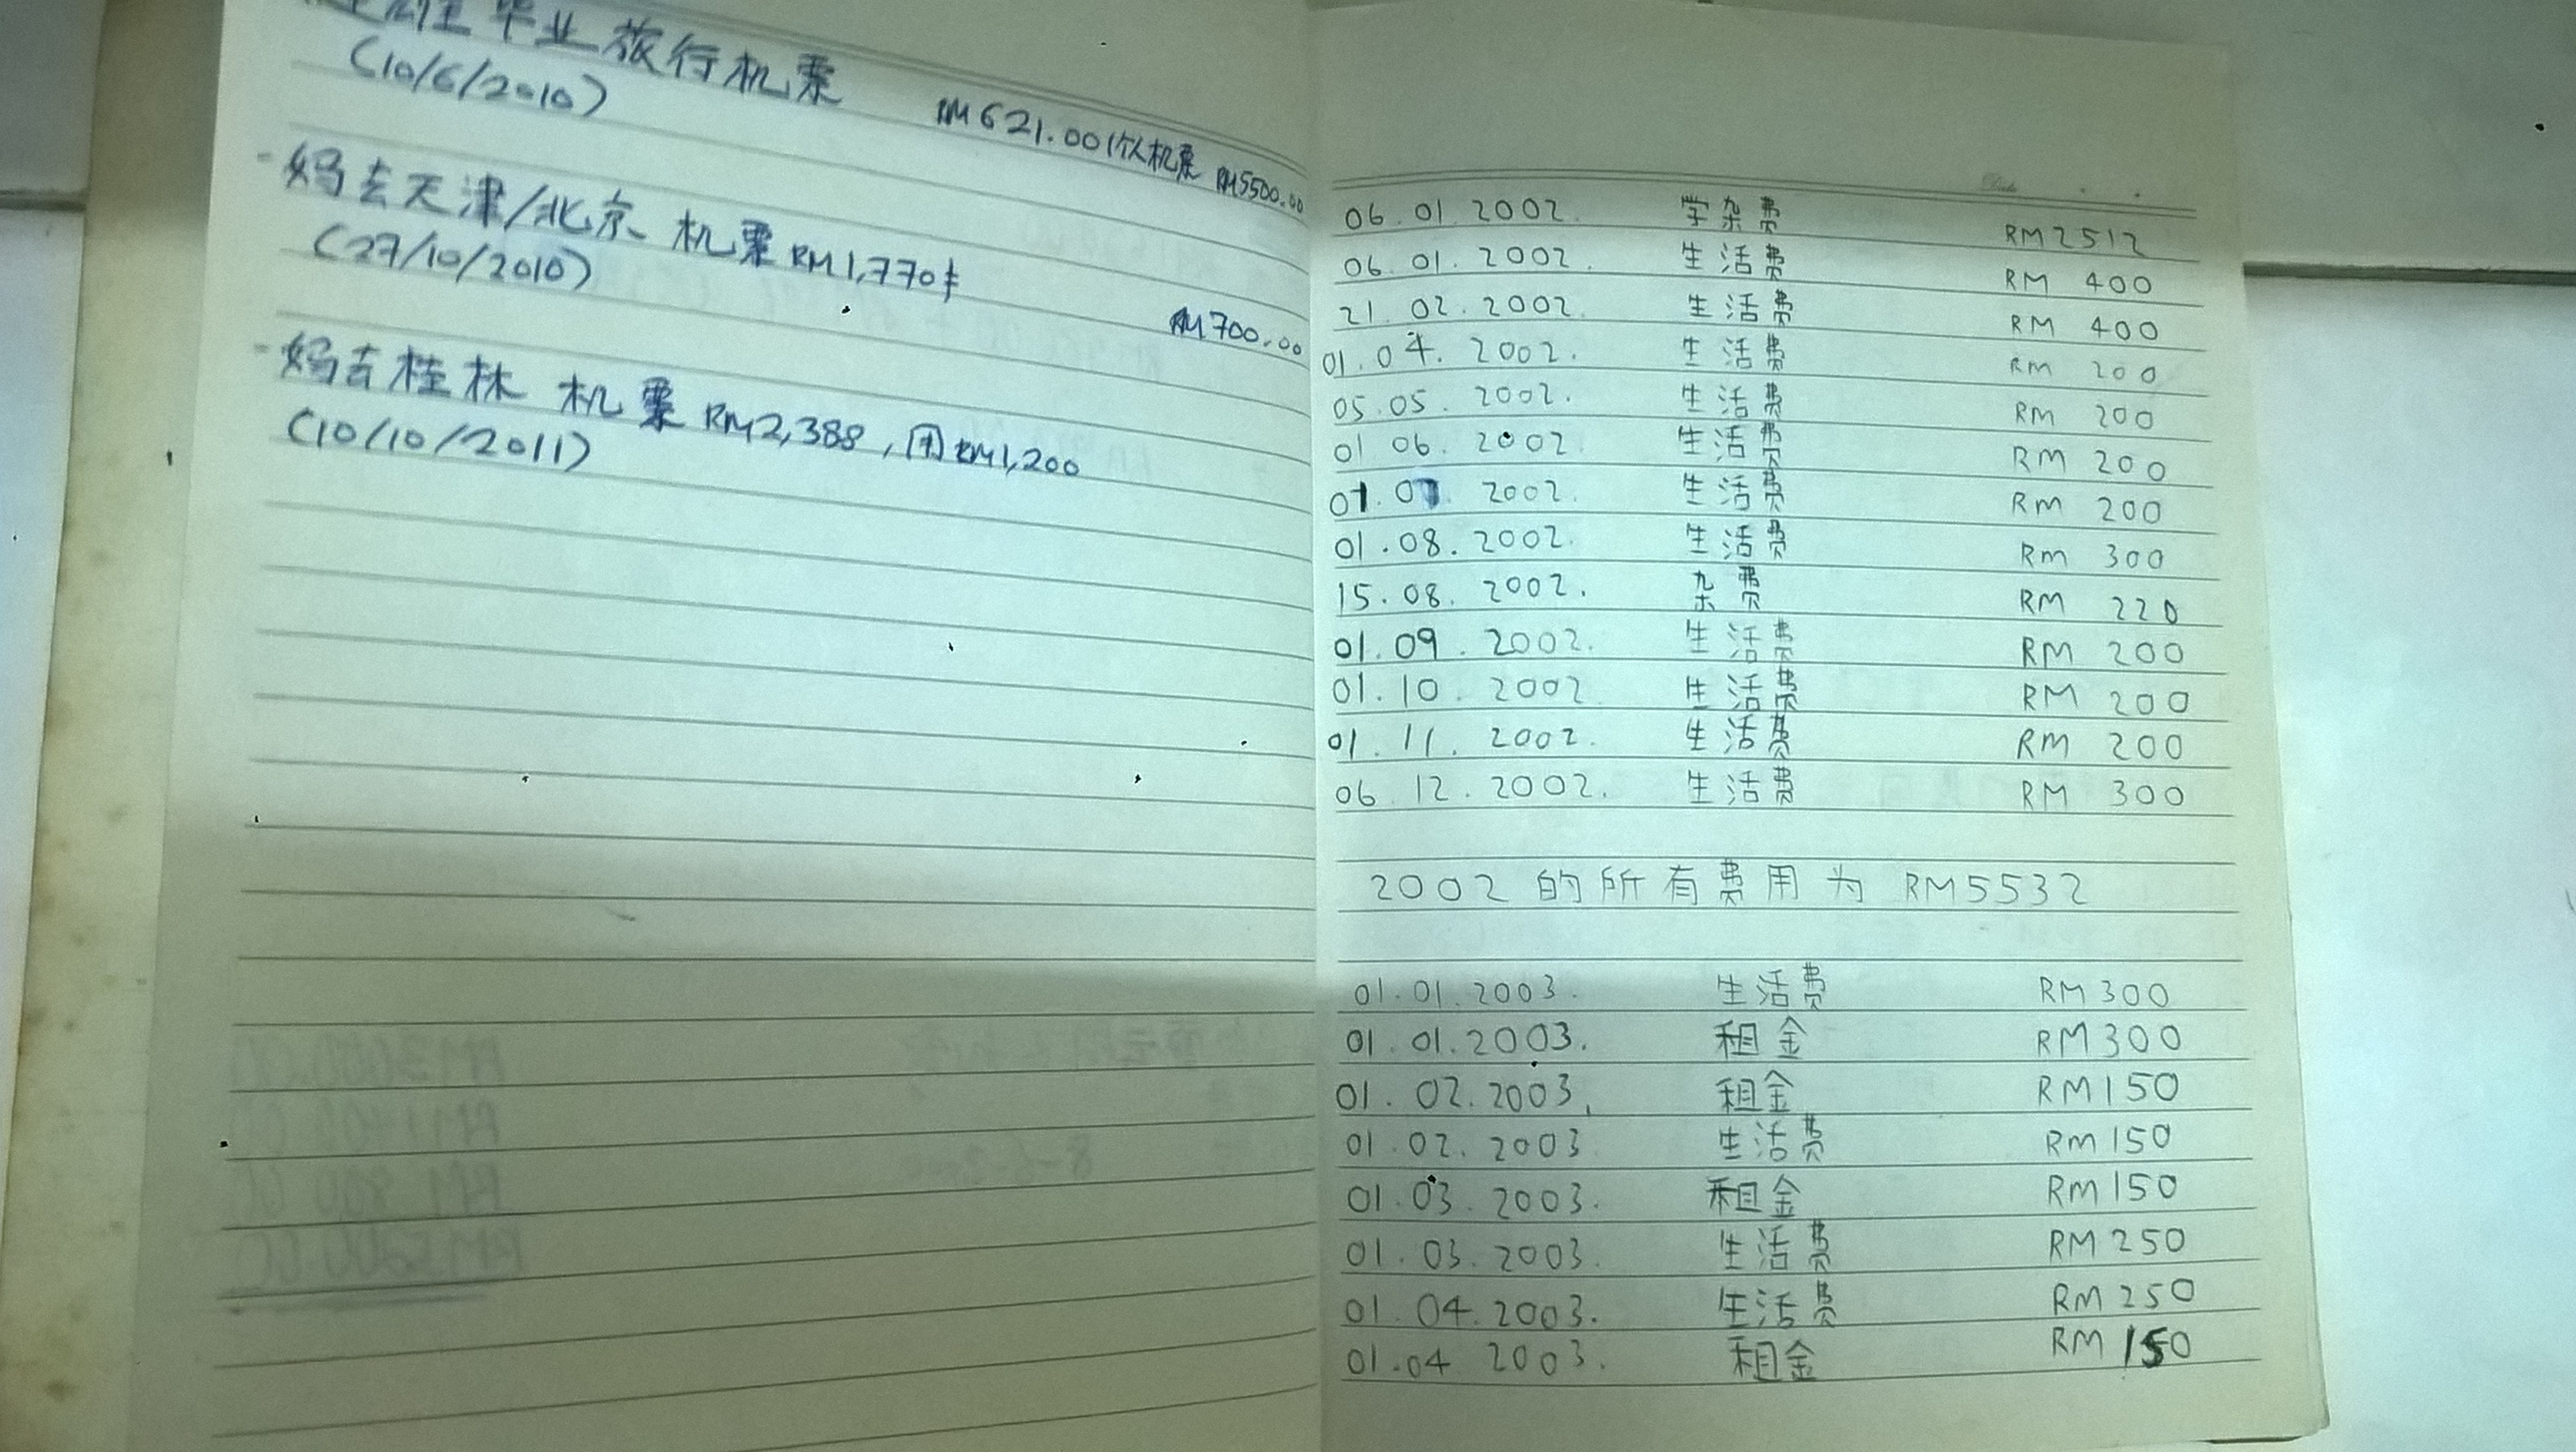 毕业旅行机票
(10/6/2010)
RM621.00 1个人机票 RM5500.00
-妈去天津/北京 机票RM1,770
(27/10/2010)
RM700.00
-妈去桂林 机票RM2,388,用RM1,200
(10/10/2011)
Date
06.01.2002. 学杂费 RM2512
06.01.2002. 生活费 RM 400
21.02.2002. 生活费 RM 400
01.04.2002. 生活费 RM 200
05.05.2002. 生活费 RM 200
01 06. 2002. 生活费 RM 200
01.07. 2002. 生活费 RM 200
01.08.2002. 生活费 RM 300
15.08.2002. 杂费 RM 220
01.09.2002. 生活费 RM 200
01.10.2002 生活费 RM 200
01.11.2002. 生活费 RM 200
06.12.2002. 生活费 RM 300
2002 的所有费用为 RM5532
01.01.2003. 生活费 RM300
01.01.2003. 租金 RM300
01.02.2003, 租金 RM150
01.02.2003 生活费 RM150
01.03.2003. 租金 RM150
01.03.2003. 生活费 RM250
01.04.2003. 生活费 RM250
01.04 2003. 租金 RM 150